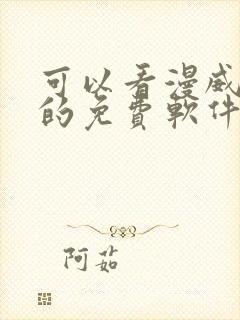 可以看漫威
的免費軟件
阿茹